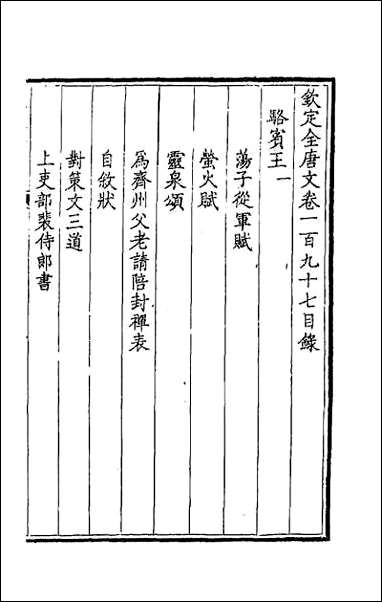 欽定全唐文卷一百九十七目錄
駱賓王一
蕩子從軍賦
螢火賦
靈泉頌
為齊州父老請陪封禪表
自敘狀
對策文三道
上吏部裴侍郎書